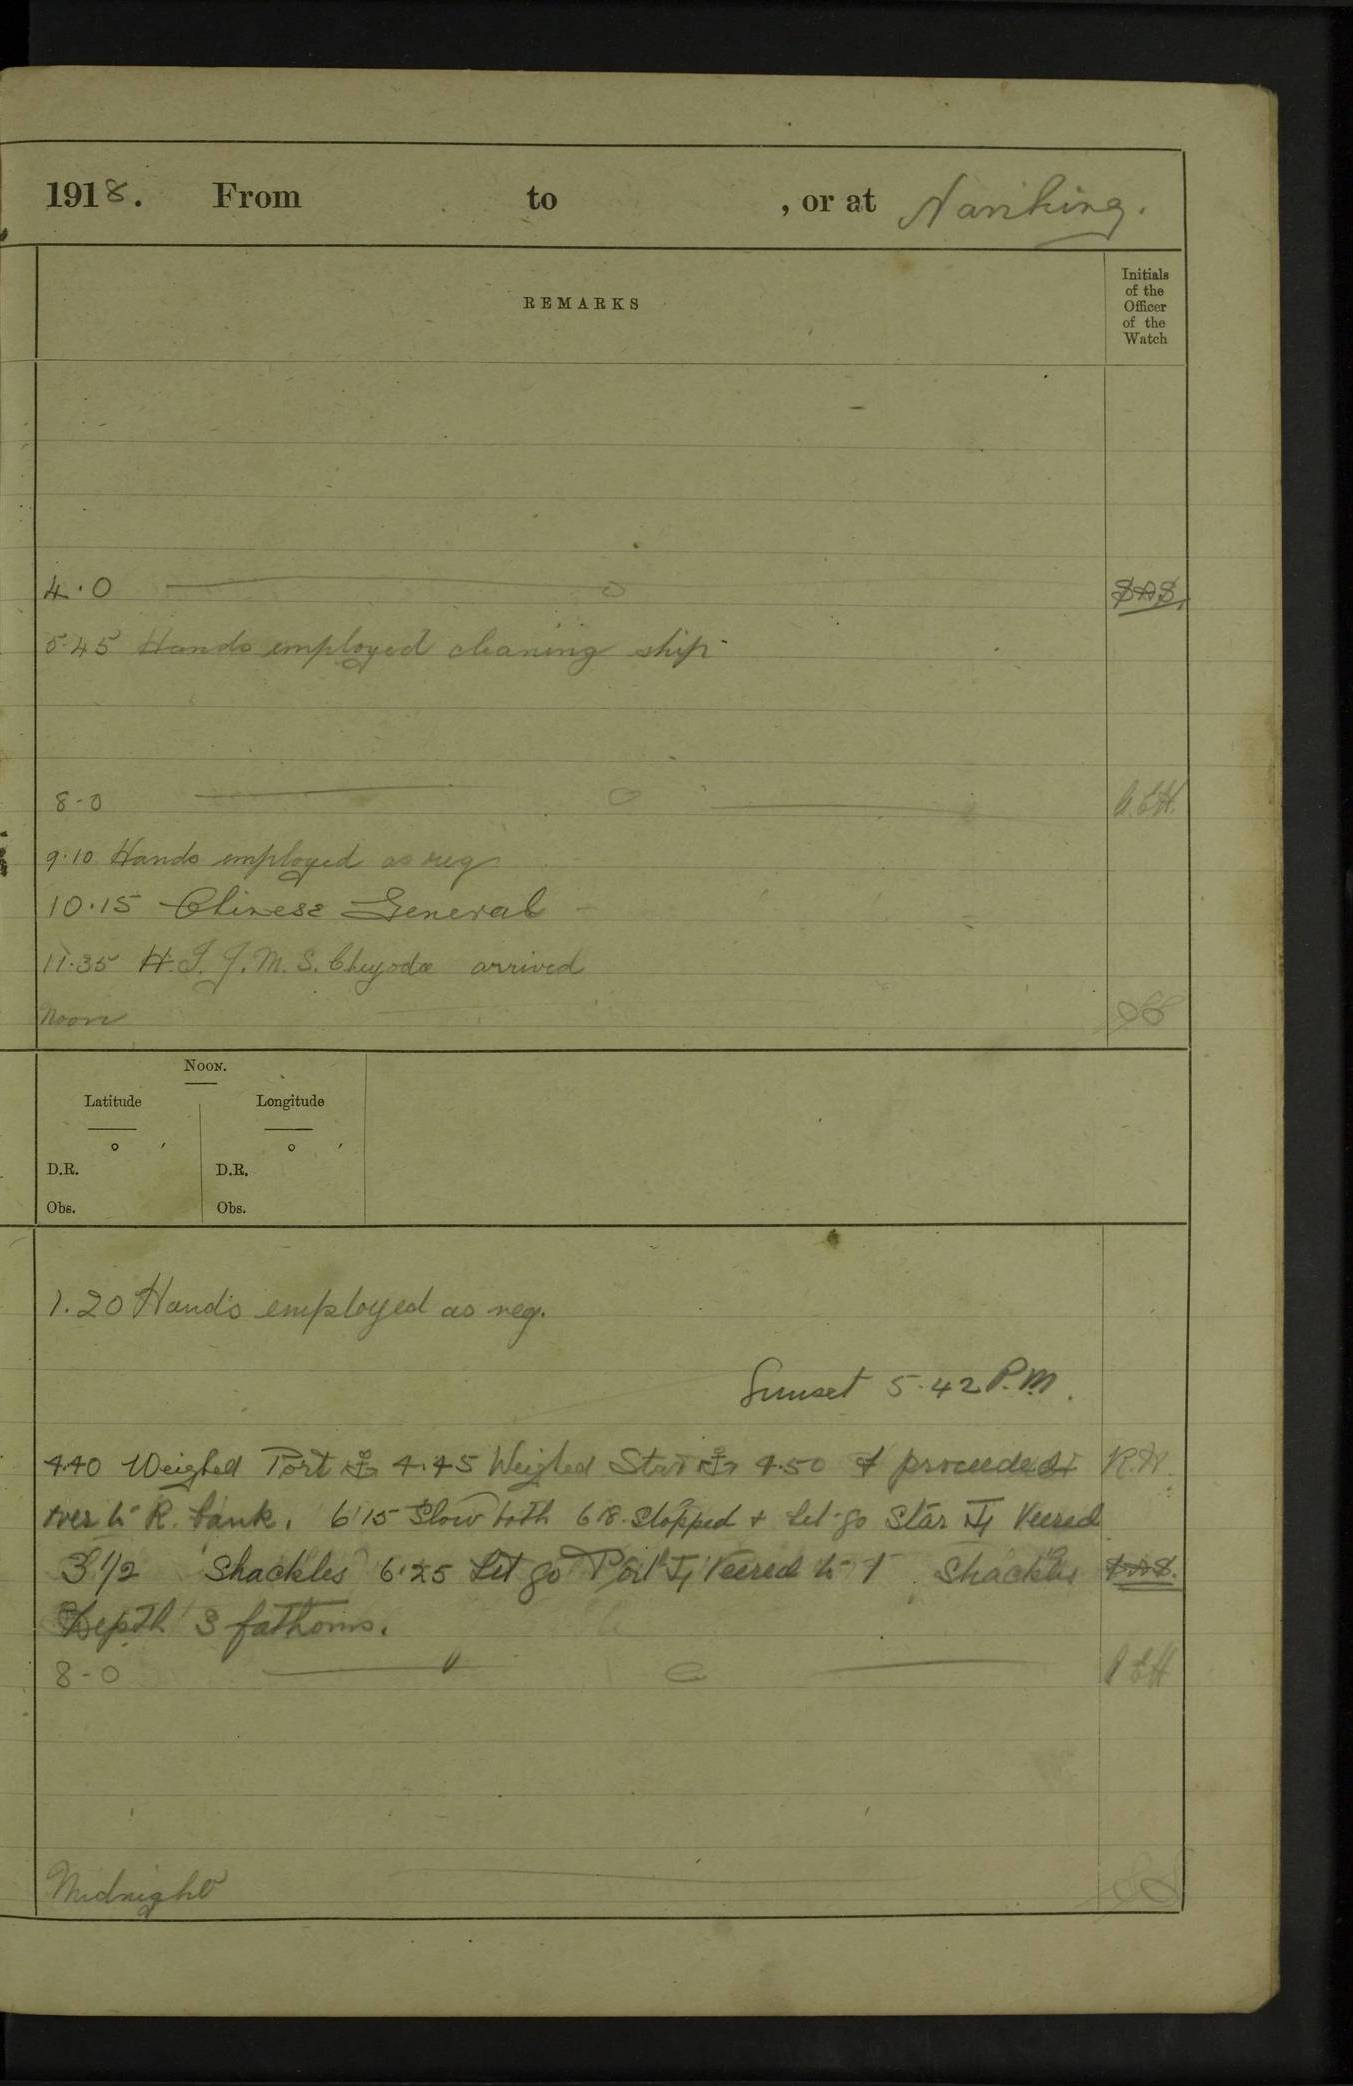 1918. From to , or at Nanking.
REMARKS
Initials
of the
Officer
of the
Watch
4.0
5.45 Hands employed cleaning ship
8-0
9.10 Hands employed as req
10.15 Chinese General
11.35 H.I.J.M.S. Chiyoda arrived
Noon
NOON.
Latitude Longitude
° ′ ° ′
D.R. D.R.
Obs. Obs.
1.20 Hands employed as req.
Sunset 5.42 P.M.
4.40 Weighed Port ⚓ 4.45 Weighed Star ⚓ 4.50 proceeded R.H.
over to R. bank. 6.15 Slow both 6.18. Stopped & let go Star ⚓ Veered
3 1/2 Shackles 6.25 Let go Port ⚓ Veered to 1 Shackles
Depth 3 fathoms.
8-0
Midnight